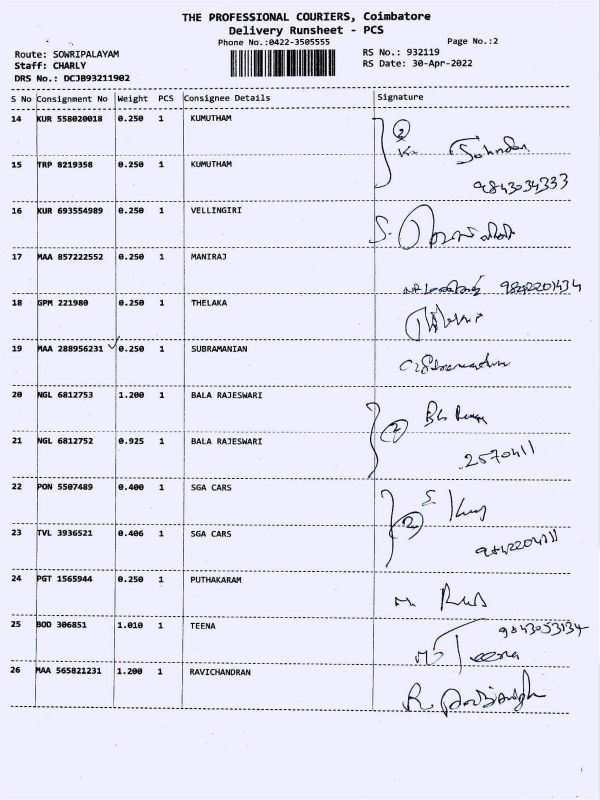 THE PROFESSIONAL COURIERS, Coimbatore
Delivery Runsheet - PCS
Phone No.:0422-3505555
Page No.:2
Route: SOWRIPALAYAM
RS No.: 932119
Staff: CHARLY
RS Date: 30-Apr-2022
DRS No.: DCJB93211902
S No Consignment No Weight PCS Consignee Details Signature
14 KUR 558020018 0.250 1 KUMUTHAM 2
15 TRP 8219358 0.250 1 KUMUTHAM
9843034333
16 KUR 693554989 0.250 1 VELLINGIRI S.
17 MAA 857222552 0.250 1 MANIRAJ
18 GPM 221980 0.250 1 THELAKA
19 MAA 288956231 0.250 1 SUBRAMANIAN
20 NGL 6812753 1.200 1 BALA RAJESWARI
2
21 NGL 6812752 0.925 1 BALA RAJESWARI
22 PON 5507489 0.400 1 SGA CARS S.
2
23 TVL 3936521 0.406 1 SGA CARS
24 PGT 1565944 0.250 1 PUTHAKARAM
25 BOD 306851 1.010 1 TEENA 9843053134
Teena
26 MAA 565821231 1.200 1 RAVICHANDRAN R.